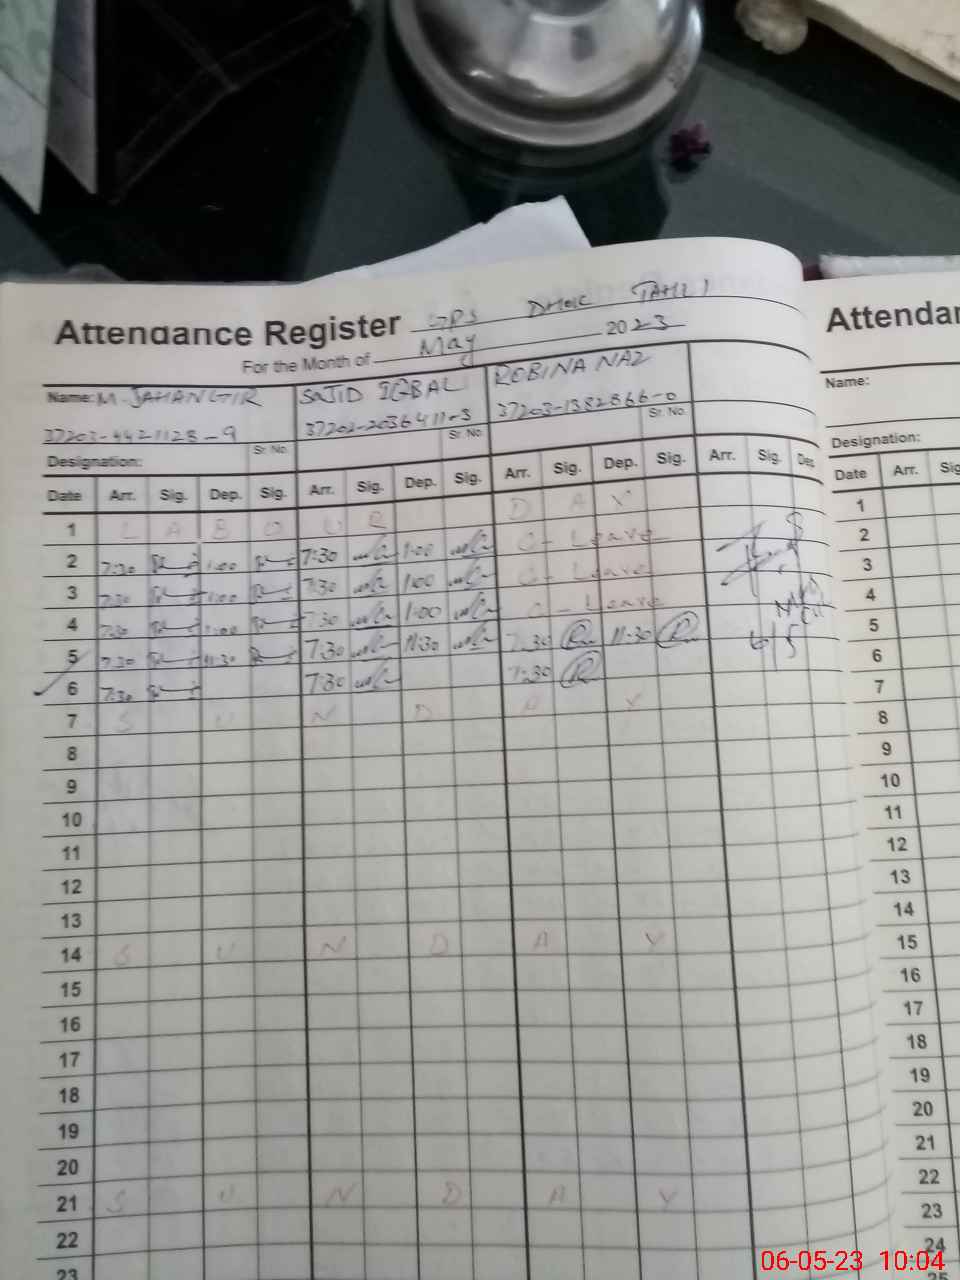 Attendance Register GPS DHOK TAHLI
For the Month of May 2023
Name: M. JAHANGIR SAJID IQBAL ROBINA NAZ
37203-4421128-9 37202-2036411-3 37203-1382866-0
Sr. No. Sr. No. Sr. No.
Designation:
Date Arr. Sig. Dep. Sig. Arr. Sig. Dep. Sig. Arr. Sig. Dep. Sig. Arr. Sig. Des
1 L A B O U R D A Y
2 7:30 1:00 7:30 1:00 C - Leave
3 7:30 1:00 7:30 1:00 C - Leave
4 7:30 1:00 7:30 1:00 C - Leave
5 7:30 11:30 7:30 11:30 7:30 R 11:30 R 6/5
6 7:30 7:30 7:30 R
7 S U N D A Y
8
9
10
11
12
13
14 S U N D A Y
15
16
17
18
19
20
21 S U N D A Y
22
23
Attendan
Name:
Designation:
Date Arr. Sig
1
2
3
4
5
6
7
8
9
10
11
12
13
14
15
16
17
18
19
20
21
22
23
24
25
06-05-23 10:04